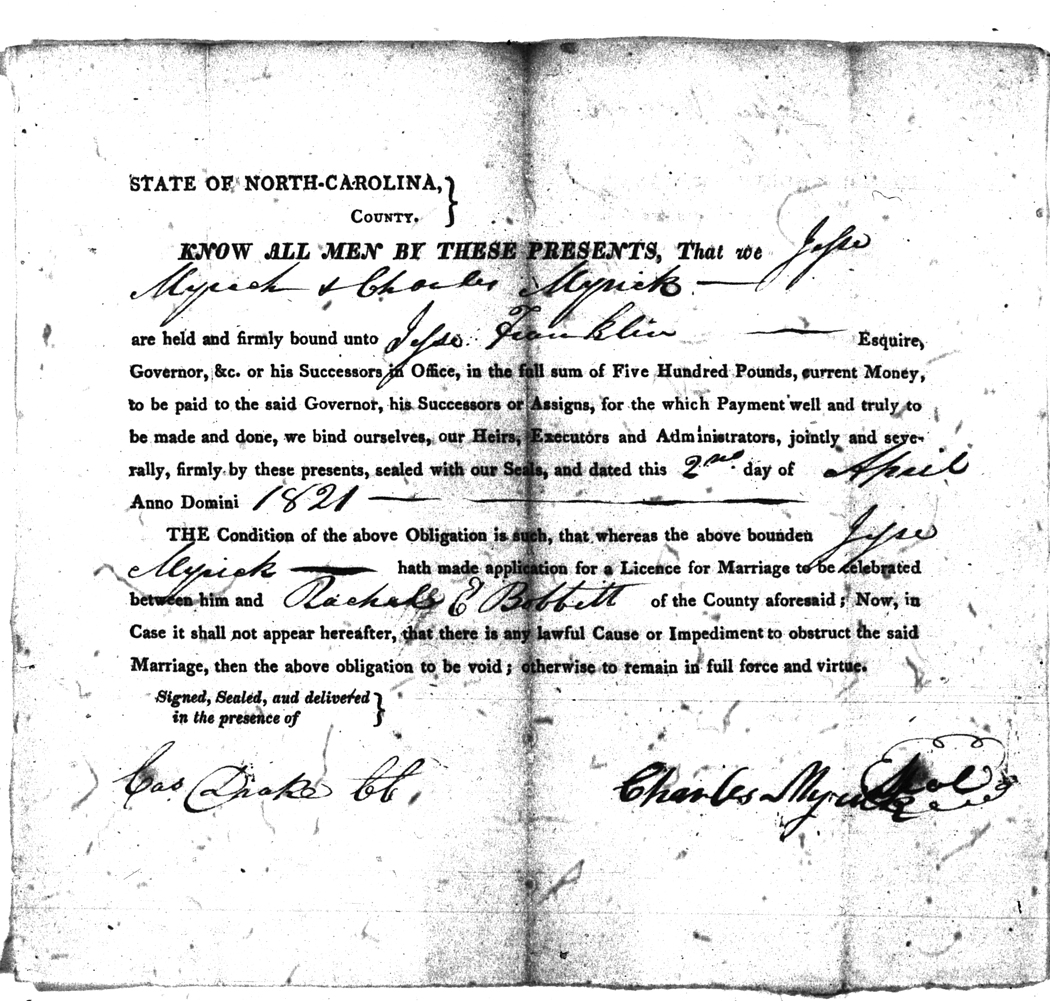 STATE OF NORTH-CAROLINA, }
COUNTY.
KNOW ALL MEN BY THESE PRESENTS, That we Jesse
Myrick & Charles Myrick —
are held and firmly bound unto Jesse Franklin — Esquire,
Governor, &c. or his Successors in Office, in the full sum of Five Hundred Pounds, current Money,
to be paid to the said Governor, his Successors or Assigns, for the which Payment well and truly to
be made and done, we bind ourselves, our Heirs, Executors and Administrators, jointly and seve-
rally, firmly by these presents, sealed with our Seals, and dated this 2nd day of April
Anno Domini 1821 —
THE Condition of the above Obligation is such, that whereas the above bounden Jesse
Myrick — hath made application for a Licence for Marriage to be celebrated
between him and Rachel E Bobbitt of the County aforesaid; Now, in
Case it shall not appear hereafter, that there is any lawful Cause or Impediment to obstruct the said
Marriage, then the above obligation to be void; otherwise to remain in full force and virtue.
Signed, Sealed, aud delivered }
in the presence of
Cas. Drake CC. Charles Myrick Seal